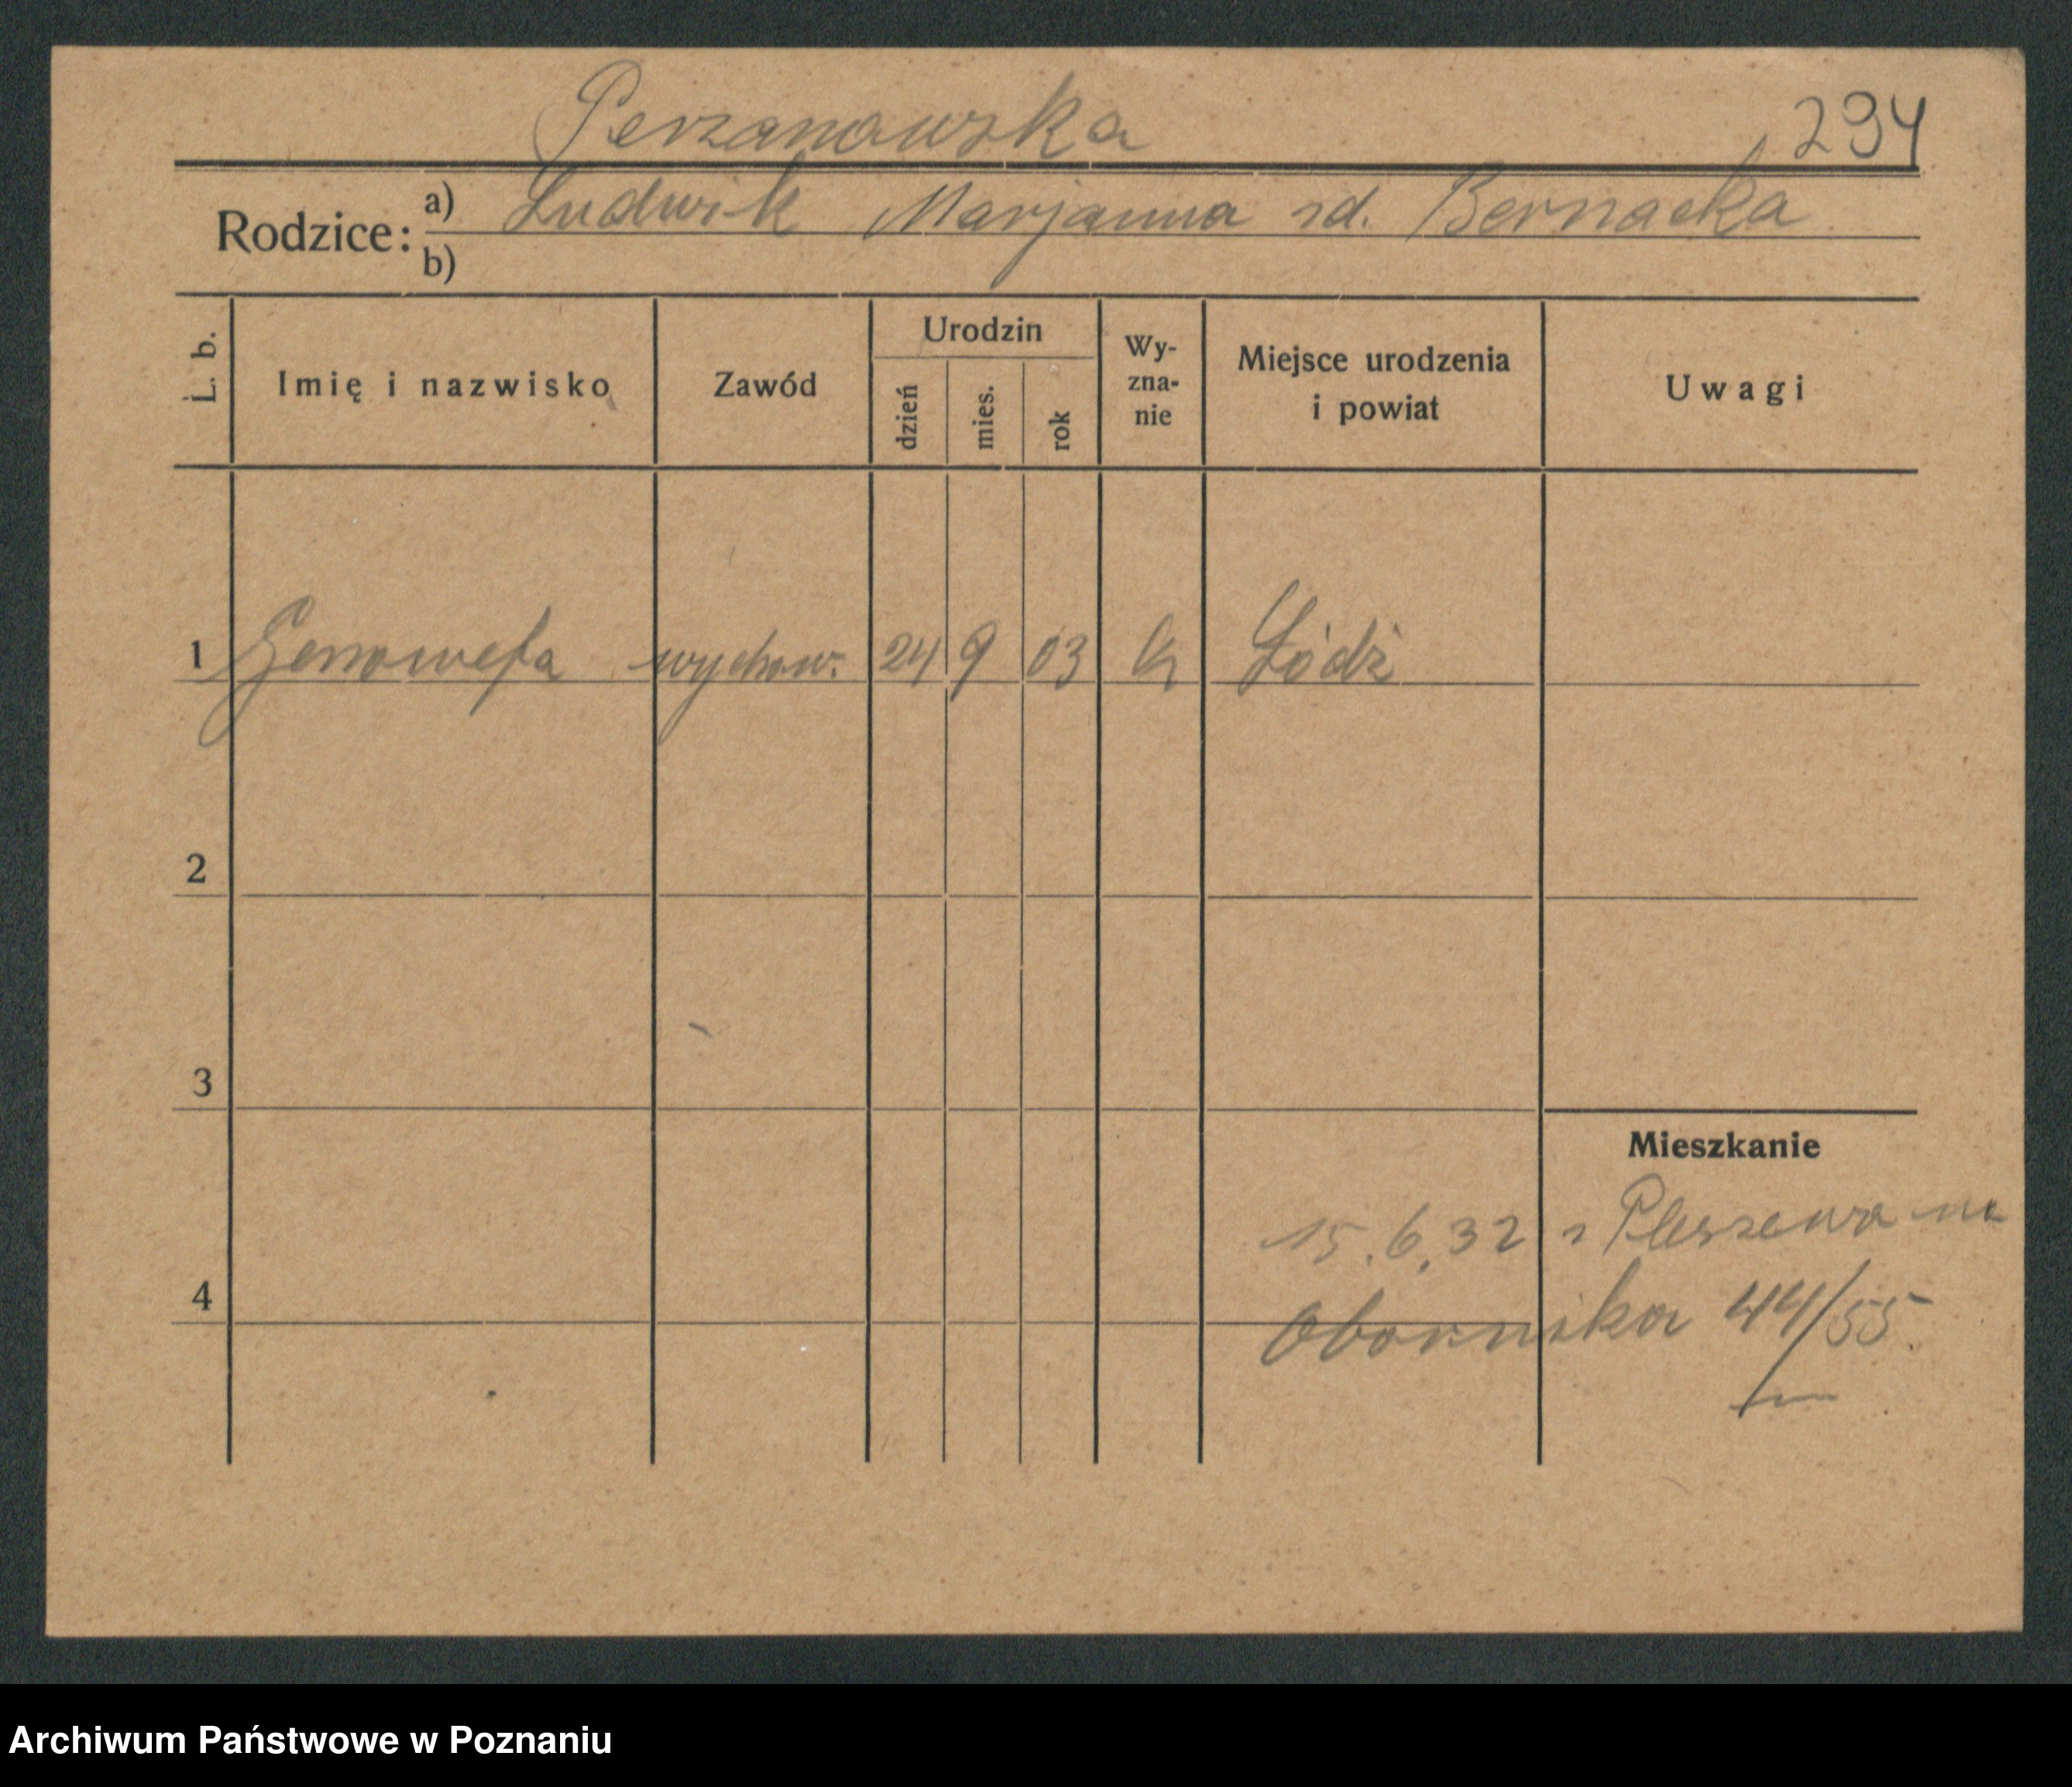 Perzanowska 294
Rodzice: a) Ludwik Marjanna zd. Bernacka
b)
L. b. Imię i nazwisko Zawód Urodzin dzień mies. rok Wy-zna-nie Miejsce urodzenia i powiat Uwagi
1 Genowefa wychow. 24 9 03 k Łódź
2
3
Mieszkanie
15.6.32 z Pleszewa na
4
Obornika 44/55.
Archiwum Państwowe w Poznaniu